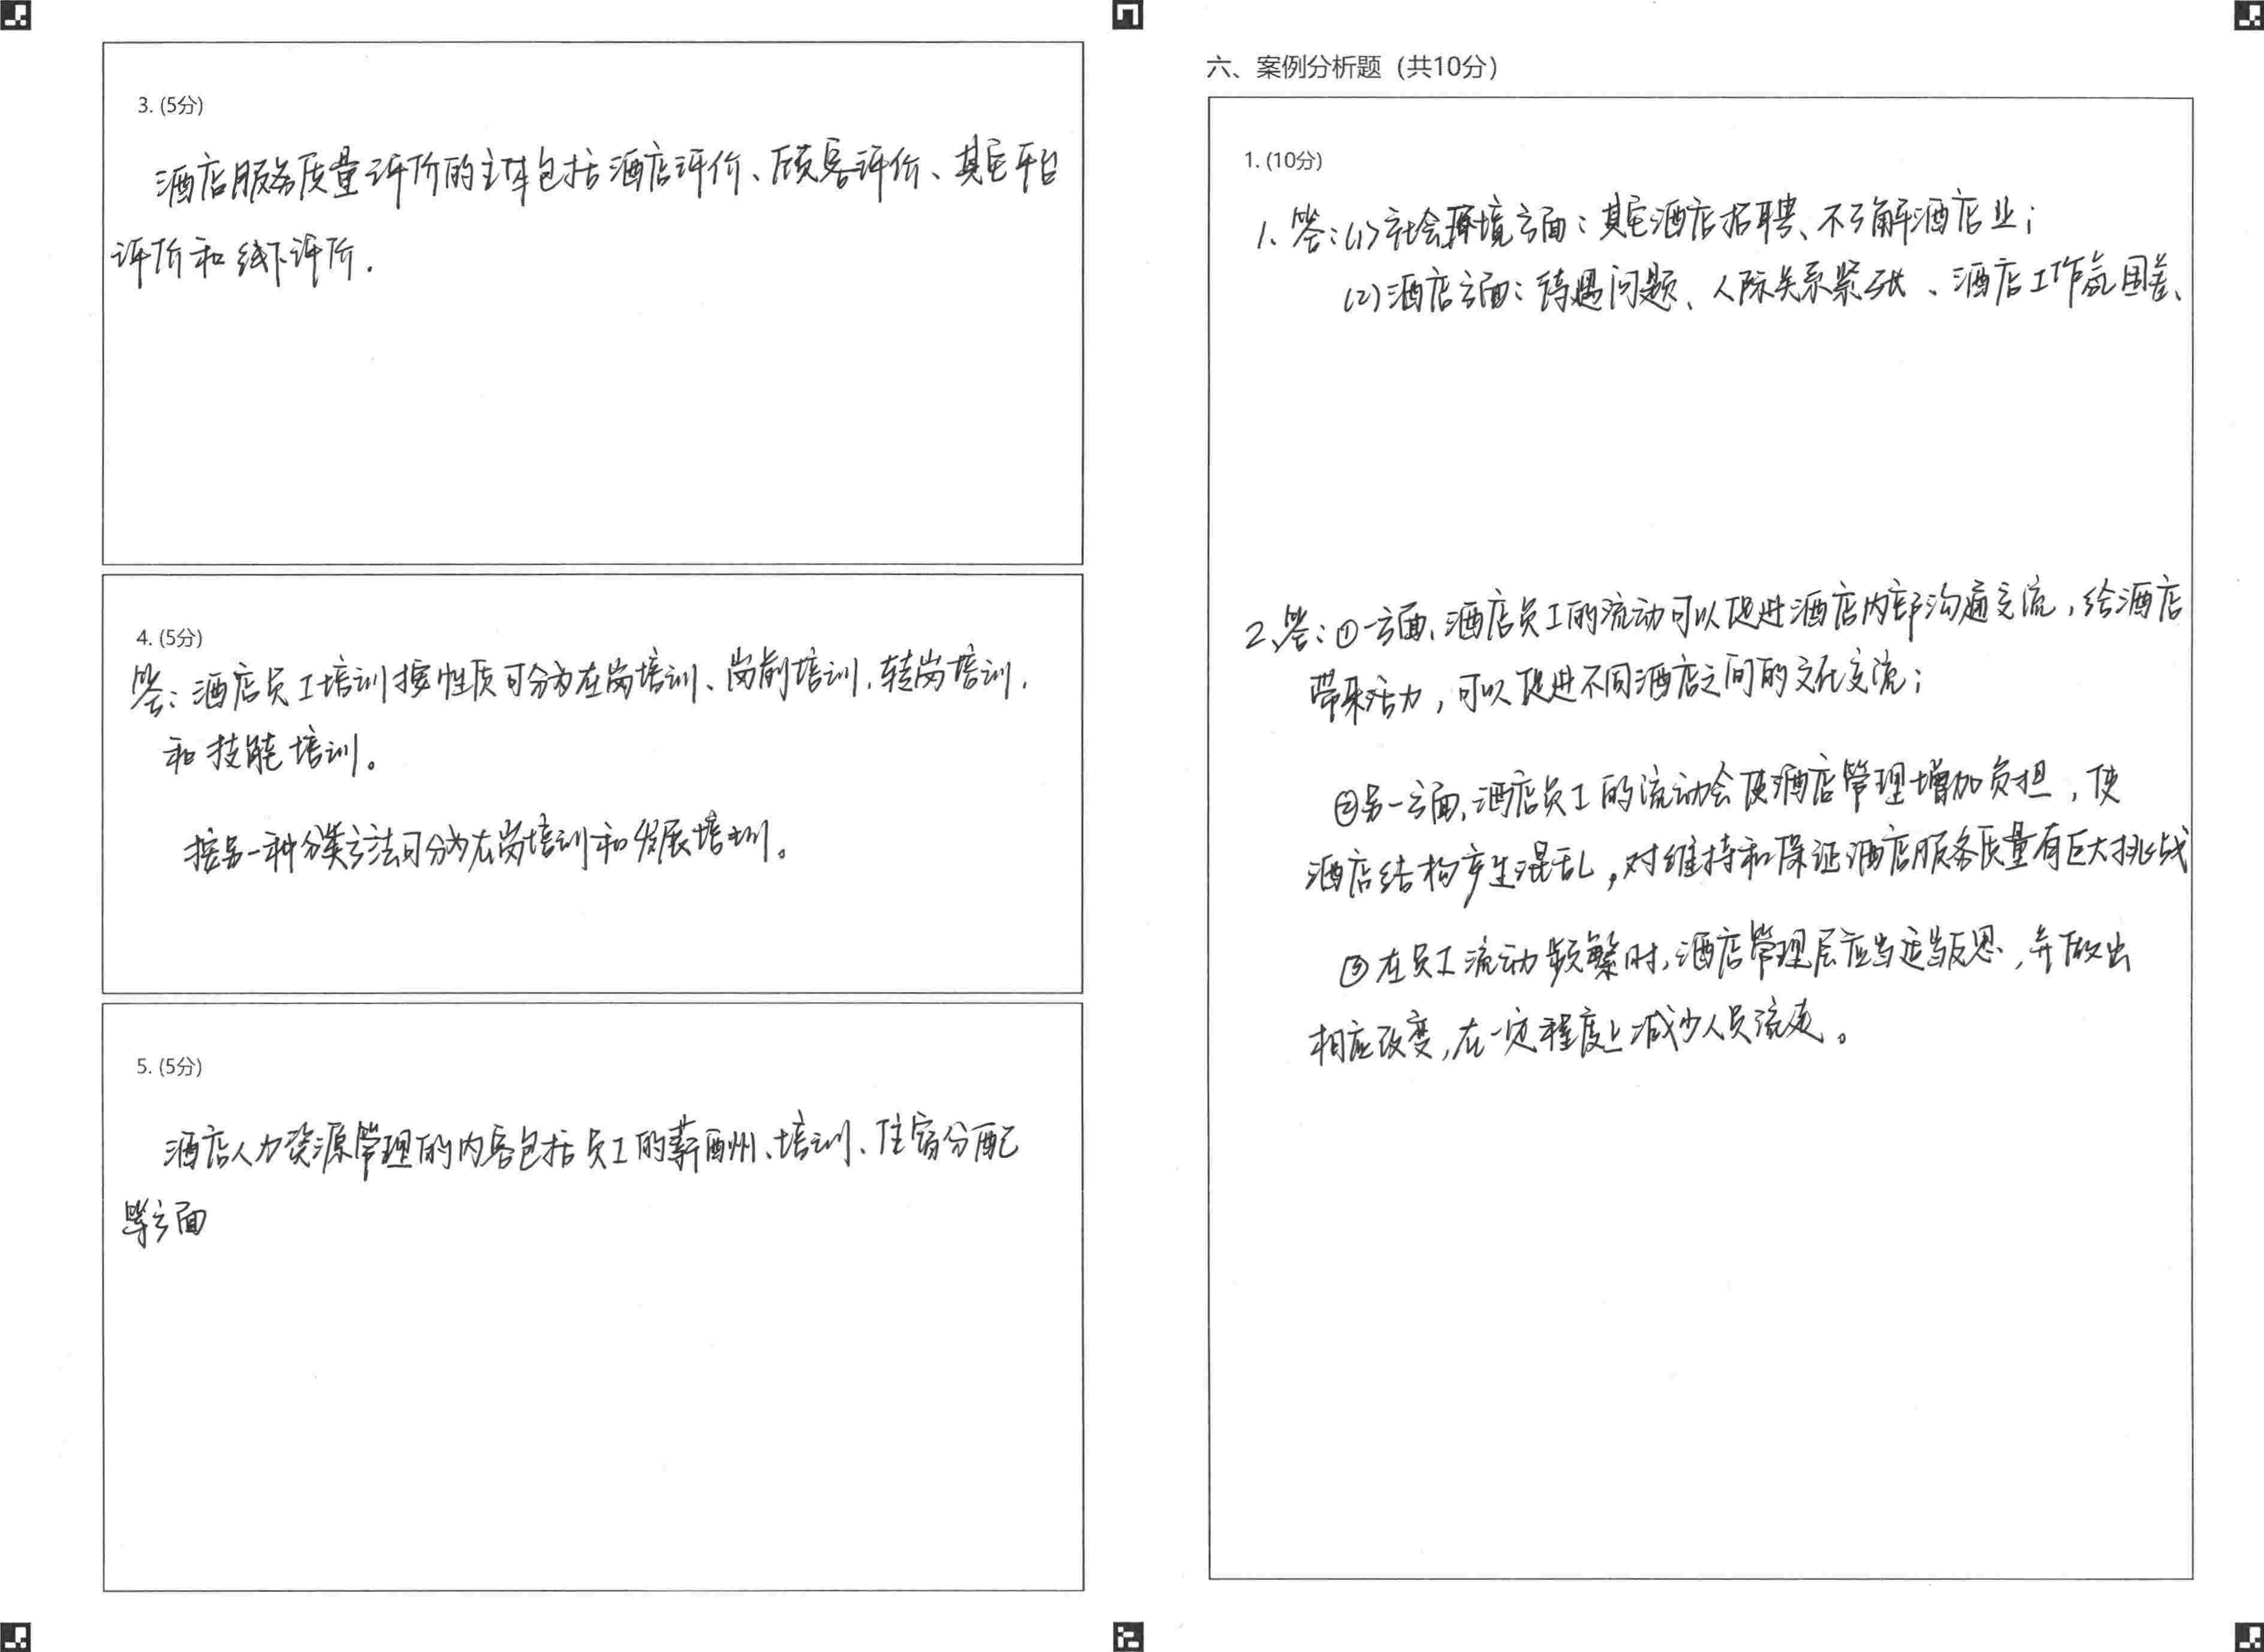 3. (5分)
酒店服务质量评价的主体包括酒店评价、顾客评价、其它平台
评价和线下评价.
4. (5分)
答:酒店员工培训按性质可分为在岗培训、岗前培训、转岗培训、
和技能培训。
按另一种分类方法可分为在岗培训和发展培训。
5. (5分)
酒店人力资源管理的内容包括员工的薪酬、培训、住宿分配
等方面
六、案例分析题(共10分)
1. (10分)
1、答:(1)社会环境方面:其它酒店招聘、不了解酒店业;
(2)酒店方面:待遇问题、人际关系紧张、酒店工作氛围差、
2、答:①一方面,酒店员工的流动可以促进酒店内部沟通交流,给酒店
带来活力,可以促进不同酒店之间的文化交流;
②另一方面,酒店员工的流动会使酒店管理增加负担,使
酒店结构产生混乱,对维持和保证酒店服务质量有巨大挑战
③在员工流动频繁时,酒店管理层应当适当反思,并做出
相应改变,在一定程度上减少人员流走。